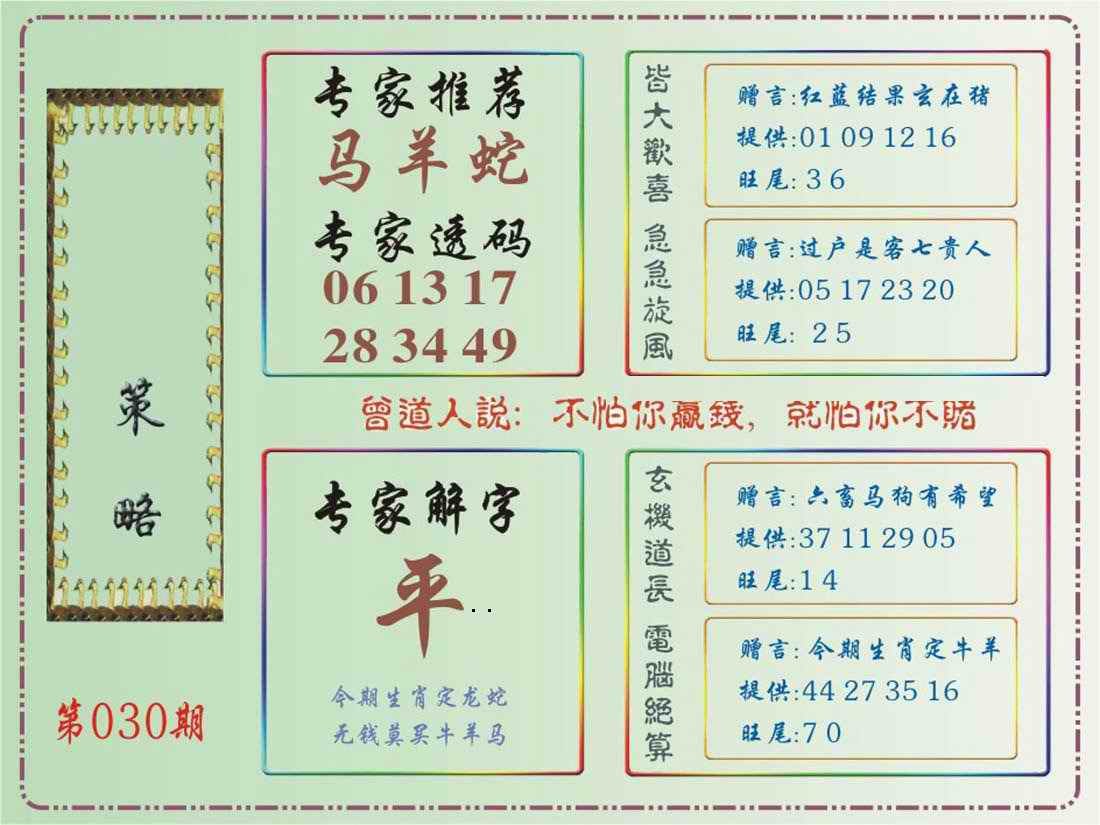 策略
第030期
专家推荐
马羊蛇
专家透码
06 13 17
28 34 49
皆大歡喜
赠言:红蓝结果玄在猪
提供:01 09 12 16
旺尾: 3 6
急急旋風
赠言:过户是客七贵人
提供:05 17 23 20
旺尾: 2 5
曾道人説: 不怕你贏錢, 就怕你不賭
专家解字
平..
今期生肖定龙蛇
无钱莫买牛羊马
玄機道長
赠言: 六畜马狗有希望
提供:37 11 29 05
旺尾:1 4
電腦絕算
赠言: 今期生肖定牛羊
提供:44 27 35 16
旺尾:7 0